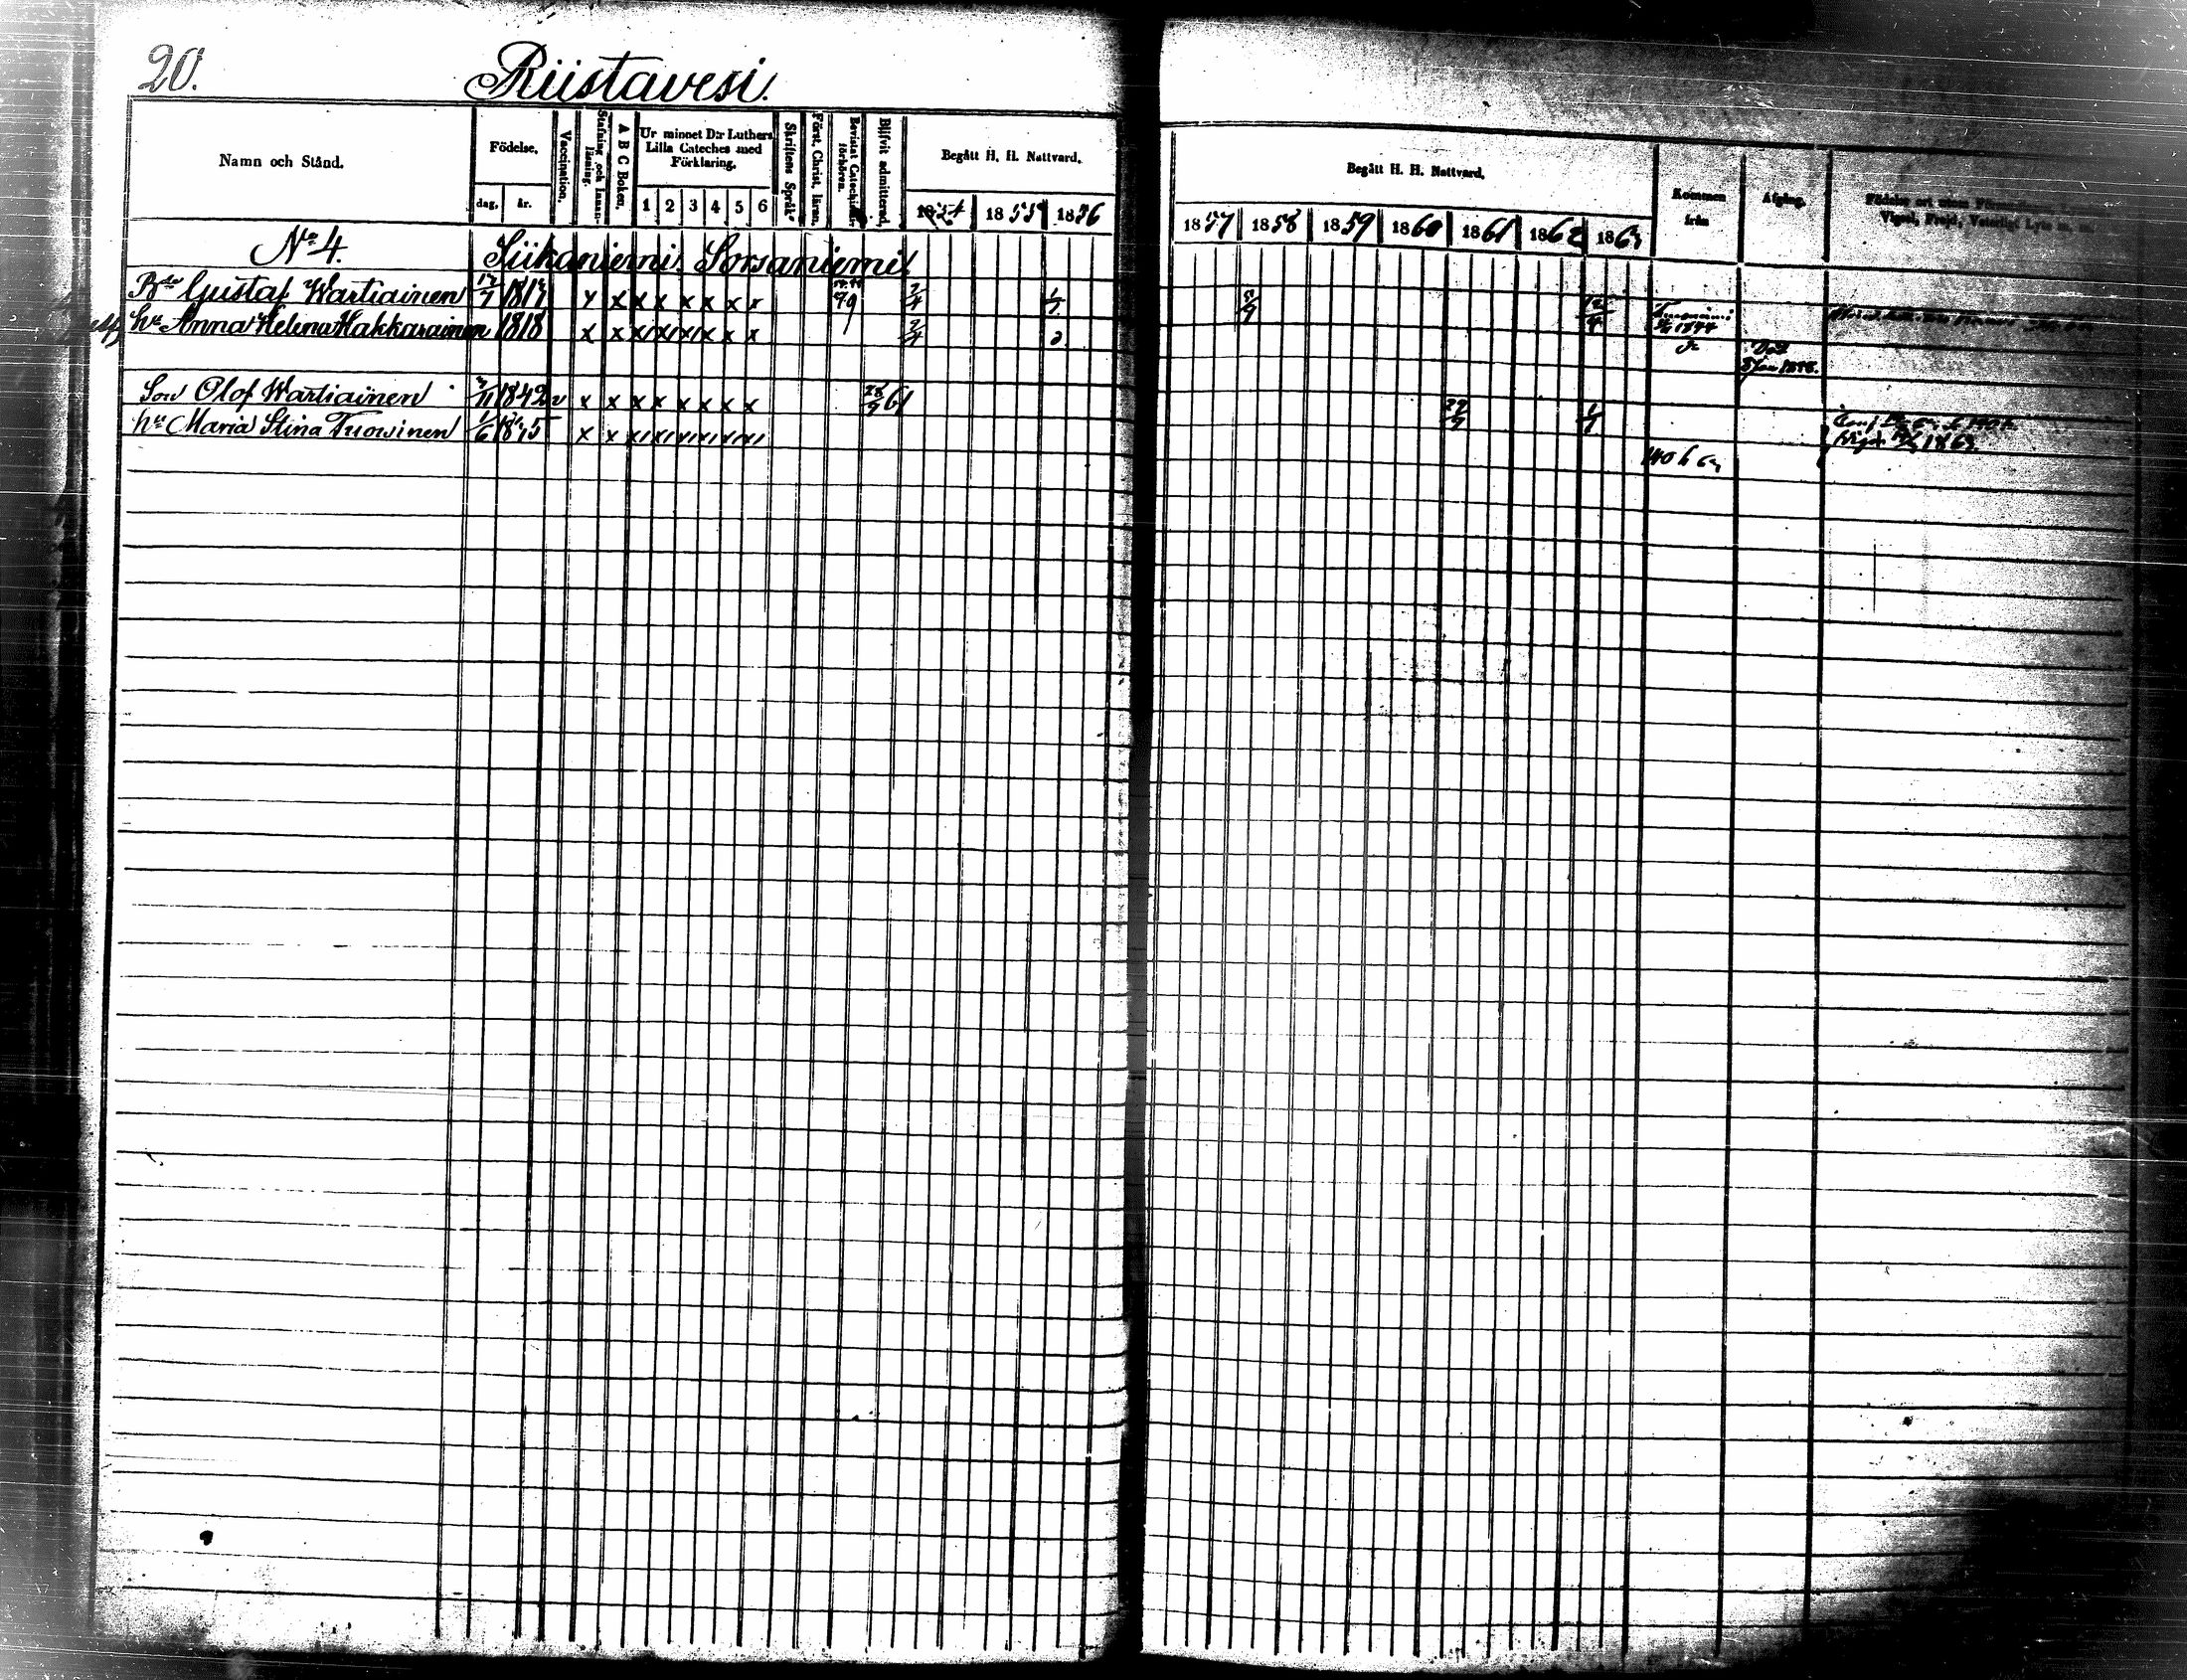 20.
Riistavesi.
Namn och Stånd.
Födelse.
dag. år.
Vaccination.
Stafning och Innanläsning.
A B C Boken.
Ur minnet D:r Luthers Lilla Cateches med Förklaring.
1 2 3 4 5 6
Skriftens Språk
Först. Christ. läran.
Bevistat Catechismi förhören.
Blifvit admitterad.
Begått H. H. Nattvard.
1854 1855 1856
Begått H. H. Nattvard.
1857 1858 1859 1860 1861 1862 1863
Kommen från
Afgång.
Födelse ort
Vigsel, Frejd, Laga Lyte m. m.
No 4. Siikaniemi. Sorsaniemi.
Bde Gustaf Wartiainen 1817 x x x x x x x x 2/4 1/7
hu Anna Helena Hakkarainen 1818 x x x x x x x x 2/4
1844
Död
Son Olof Wartiainen 1842 v x x x x x x x x 61 29/9 1/7
hu Maria Stina Tuovinen 1/6 1845 x x x x x x x x
Vigd 1863.
140 h 63